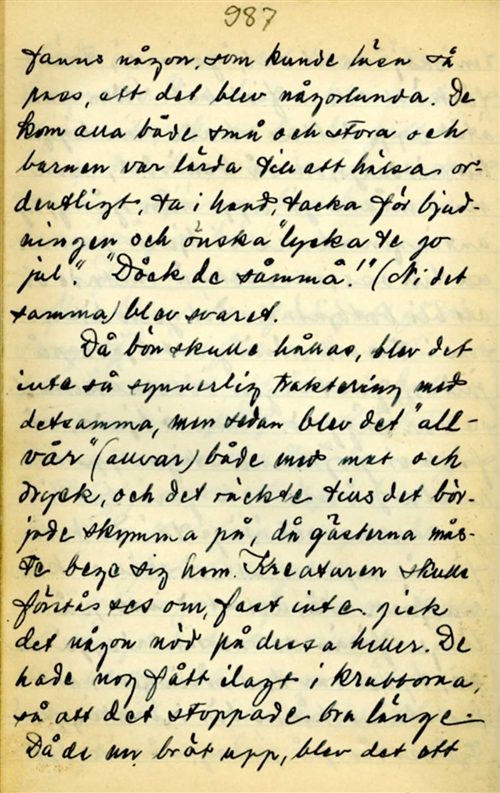 987
fanns någon, som kunde läsa så
pass, att det blev någorlunda. De
kom alla både små och stora och
barnen var lärda till att hälsa or-
dentligt, ta i hand, tacka för bjud-
ningen och önska "lycka te go
jul". "Dåck de såmmå!" (Ni det
samma) blev svaret.
Då bön skulle hållas, blev det
inte så synnerlig traktering med
detsamma, men sedan blev det "all-
vår" (allvar) både med mat och
dryck, och det räckte tills det bör-
jade skymma på, då gästerna mås-
te bege sig hem. Kreaturen skulle
förstås ses om, fast inte gick
det någon nöd på dessa heller. De
hade nog fått ilagt i krubborna,
så att det stoppade bra länge.
Då de nu bröt upp, blev det ett